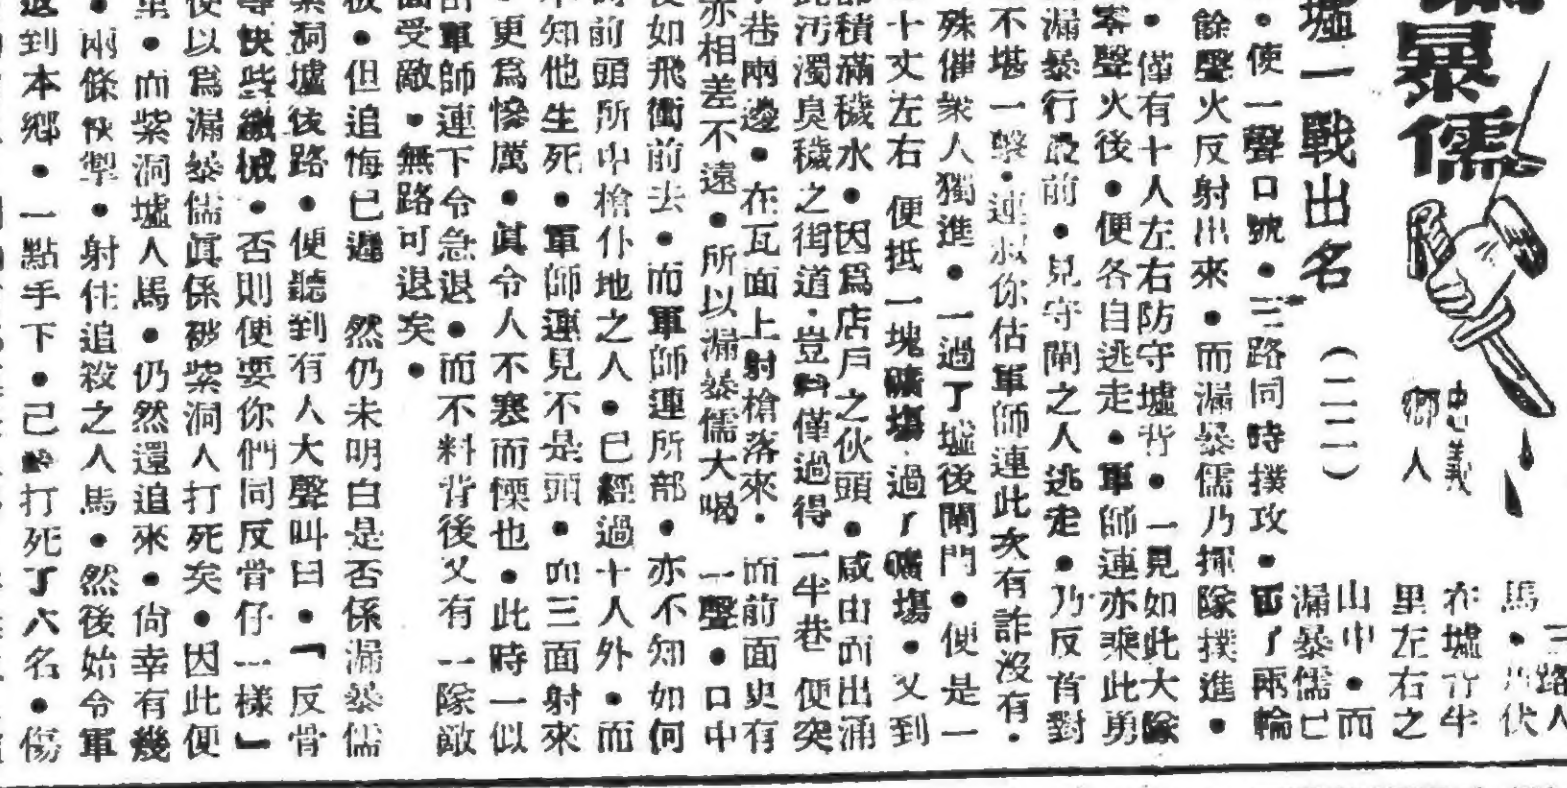 暴儒
墟一戰出名 (二二)
忠義
鄉人
三路人
馬
伏
在墟背半
里左右之
山中•而
漏暴儒已
•使一聲口號•三路同時撲攻•兩輪
餘聲火反射出來•而漏暴儒乃揮隊撲進•
•僅有十人左右防守墟背•一見如此大隊
零聲火後•便各自逃走•軍師連亦乘此勇
漏暴行最前•見守閘之人逃走•乃反首對
不堪一擊•連叔你估軍師連此次有詐沒有•
殊催衆人獨進•一過了墟後閘門•便是一
十丈左右 便抵一塊曠塲•過了曠塲•又到
積滿穢水•因爲店戶之伙頭•咸由此出涌
汚濁臭穢之街道•豈料僅過得一半巷 便突
巷兩邊•在瓦面上射槍落來•而前面更有
亦相差不遠•所以漏暴儒大喝一聲•口中
如飛衝前去•而軍師連所部•亦不知如何
前頭所中槍仆地之人•已經過十人外•而
知他生死•軍師連見不是頭•而三面射來
•更爲慘厲•眞令人不寒而慄也•此時一似
軍師連下令急退•而不料背後又有一隊敵
面受敵•無路可退矣•
•但追悔已遲 然仍未明白是否係漏暴儒
洞墟後路•便聽到有人大聲叫曰•「反骨
等快些繳械•否則便要你們同反骨仔一樣」
使以爲漏暴儒眞係被紫洞人打死矣•因此便
•而紫洞墟人馬•仍然還追來•尙幸有幾
•兩條伙 •射住追殺之人馬•然後始令軍
返到本鄉•一點手下•已 打死了六名•傷